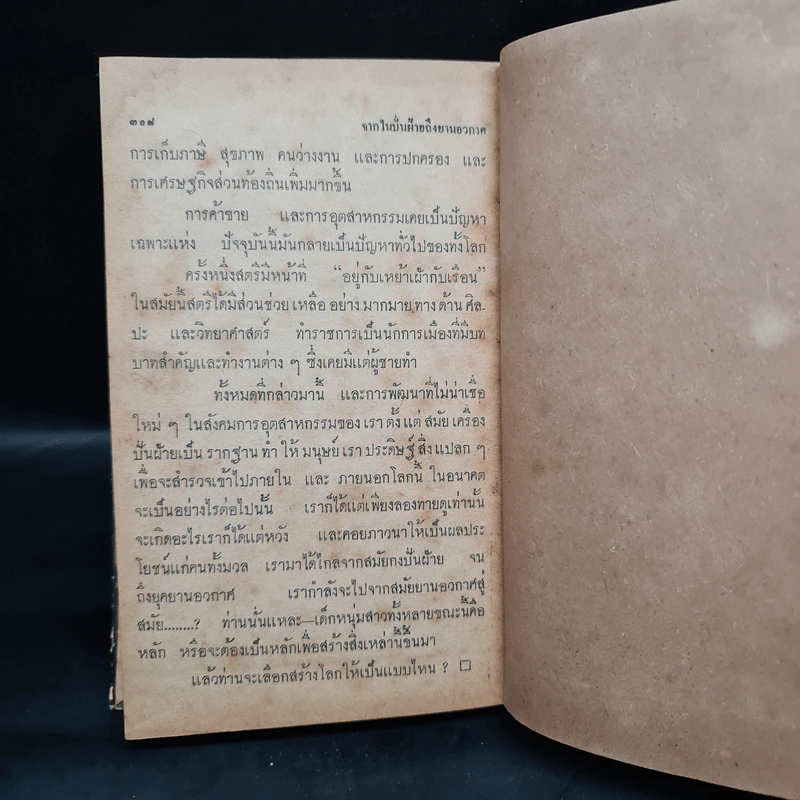 ๓๐๘ จากไนปั่นฝ้ายถึงยานอวกาศ
การเก็บภาษี สุขภาพ คนว่างงาน และการปกครอง และ
การเศรษฐกิจส่วนท้องถิ่นเพิ่มมากขึ้น
การค้าขาย และการอุตสาหกรรมเคยเป็นปัญหา
เฉพาะแห่ง ปัจจุบันนี้มันกลายเป็นปัญหาทั่วไปของทั้งโลก
ครั้งหนึ่งสตรีมีหน้าที่ “อยู่กับเหย้าเฝ้ากับเรือน”
ในสมัยนี้สตรีได้มีส่วนช่วย เหลือ อย่าง มากมาย ทาง ด้าน ศิล-
ปะ และวิทยาศาสตร์ ทำราชการเป็นนักการเมืองที่มีบท
บาทสำคัญและทำงานต่าง ๆ ซึ่งเคยมีแต่ผู้ชายทำ
ทั้งหมดที่กล่าวมานี้ และการพัฒนาที่ไม่น่าเชื่อ
ใหม่ ๆ ในสังคมการอุตสาหกรรมของ เรา ตั้ง แต่ สมัย เครื่อง
ปั่นฝ้ายเป็น รากฐาน ทำ ให้ มนุษย์ เรา ประดิษฐ์ สิ่ง แปลก ๆ
เพื่อจะสำรวจเข้าไปภายใน และ ภายนอกโลกนี้ ในอนาคต
จะเป็นอย่างไรต่อไปนั้น เราก็ได้แต่เพียงลองทายดูเท่านั้น
จะเกิดอะไรเราก็ได้แต่หวัง และคอยภาวนาให้เป็นผลประ
โยชน์แก่คนทั้งมวล เรามาได้ไกลจากสมัยกงปั่นฝ้าย จน
ถึงยุคยานอวกาศ เรากำลังจะไปจากสมัยยานอวกาศสู่
สมัย........? ท่านนั่นแหละ—เด็กหนุ่มสาวทั้งหลายขณะนี้คือ
หลัก หรือจะต้องเป็นหลักเพื่อสร้างสิ่งเหล่านี้ขึ้นมา
แล้วท่านจะเลือกสร้างโลกให้เป็นแบบไหน ? □